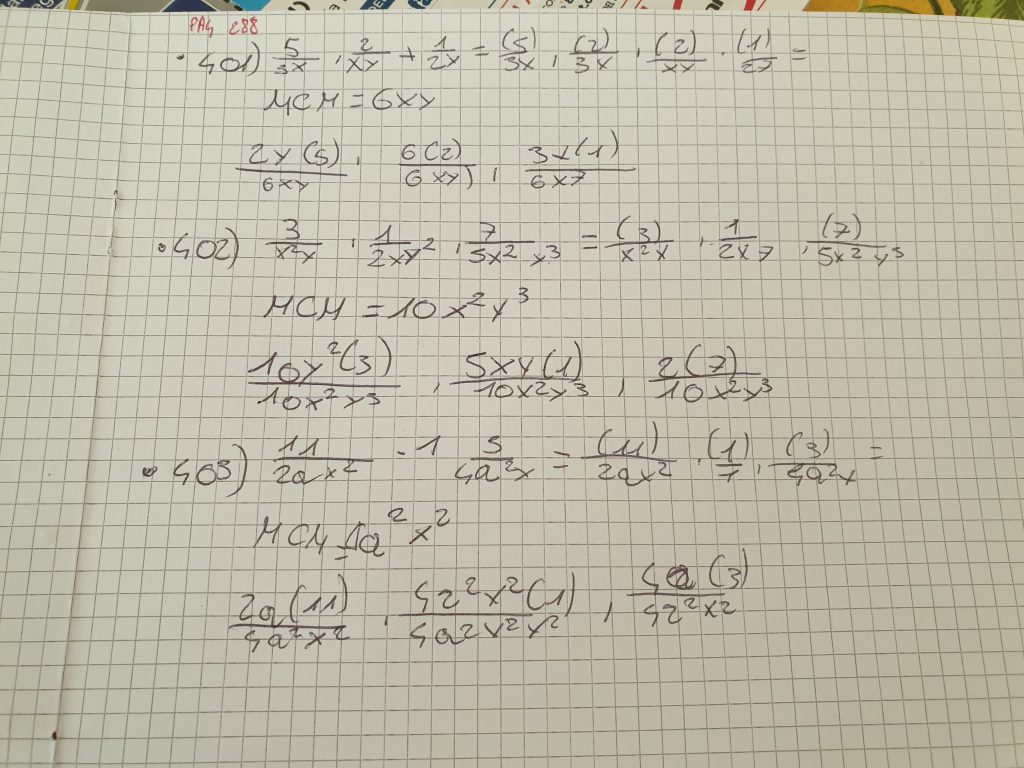 PAG 288
• 401) 5/3x , 2/xy + 1/2x = (5)/3x , (2)/3x , (2)/xy . (1)/2x =
MCM = 6xy
2y(5)/6xy , 6(2)/6xy) , 3y(1)/6x7
• 402) 3/x²x , 1/2xy² , 7/5x² y³ = (3)/x²x , 1/2x7 , (7)/5x² y³
MCM = 10x²y³
10y²(3)/10x²y³ , 5xy(1)/10x²y³ , 2(7)/10x²y³
• 403) 11/2ax² . 1 3/4a²x = (11)/2ax² . (1)/1 . (3)/4a²x =
MCM = 4a²x²
2a(11)/4a²x² . 4a²x²(1)/4a²x²x² , 4a(3)/4a²x²